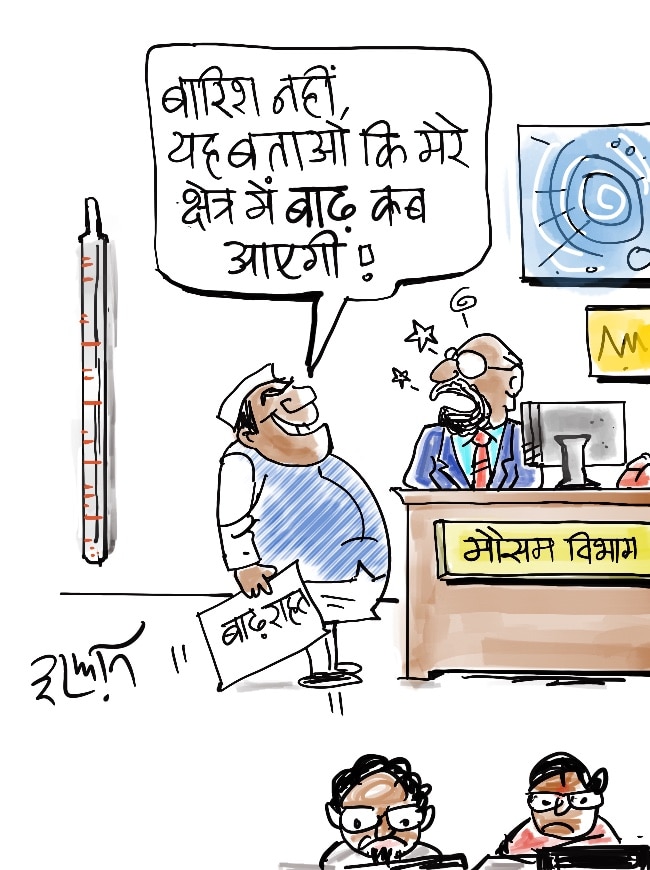 बारिश नहीं,
यह बताओ कि मेरे
क्षेत्र में बाढ़ कब
आएगी!
मौसम विभाग
बाढ़ राहत
इरफ़ान